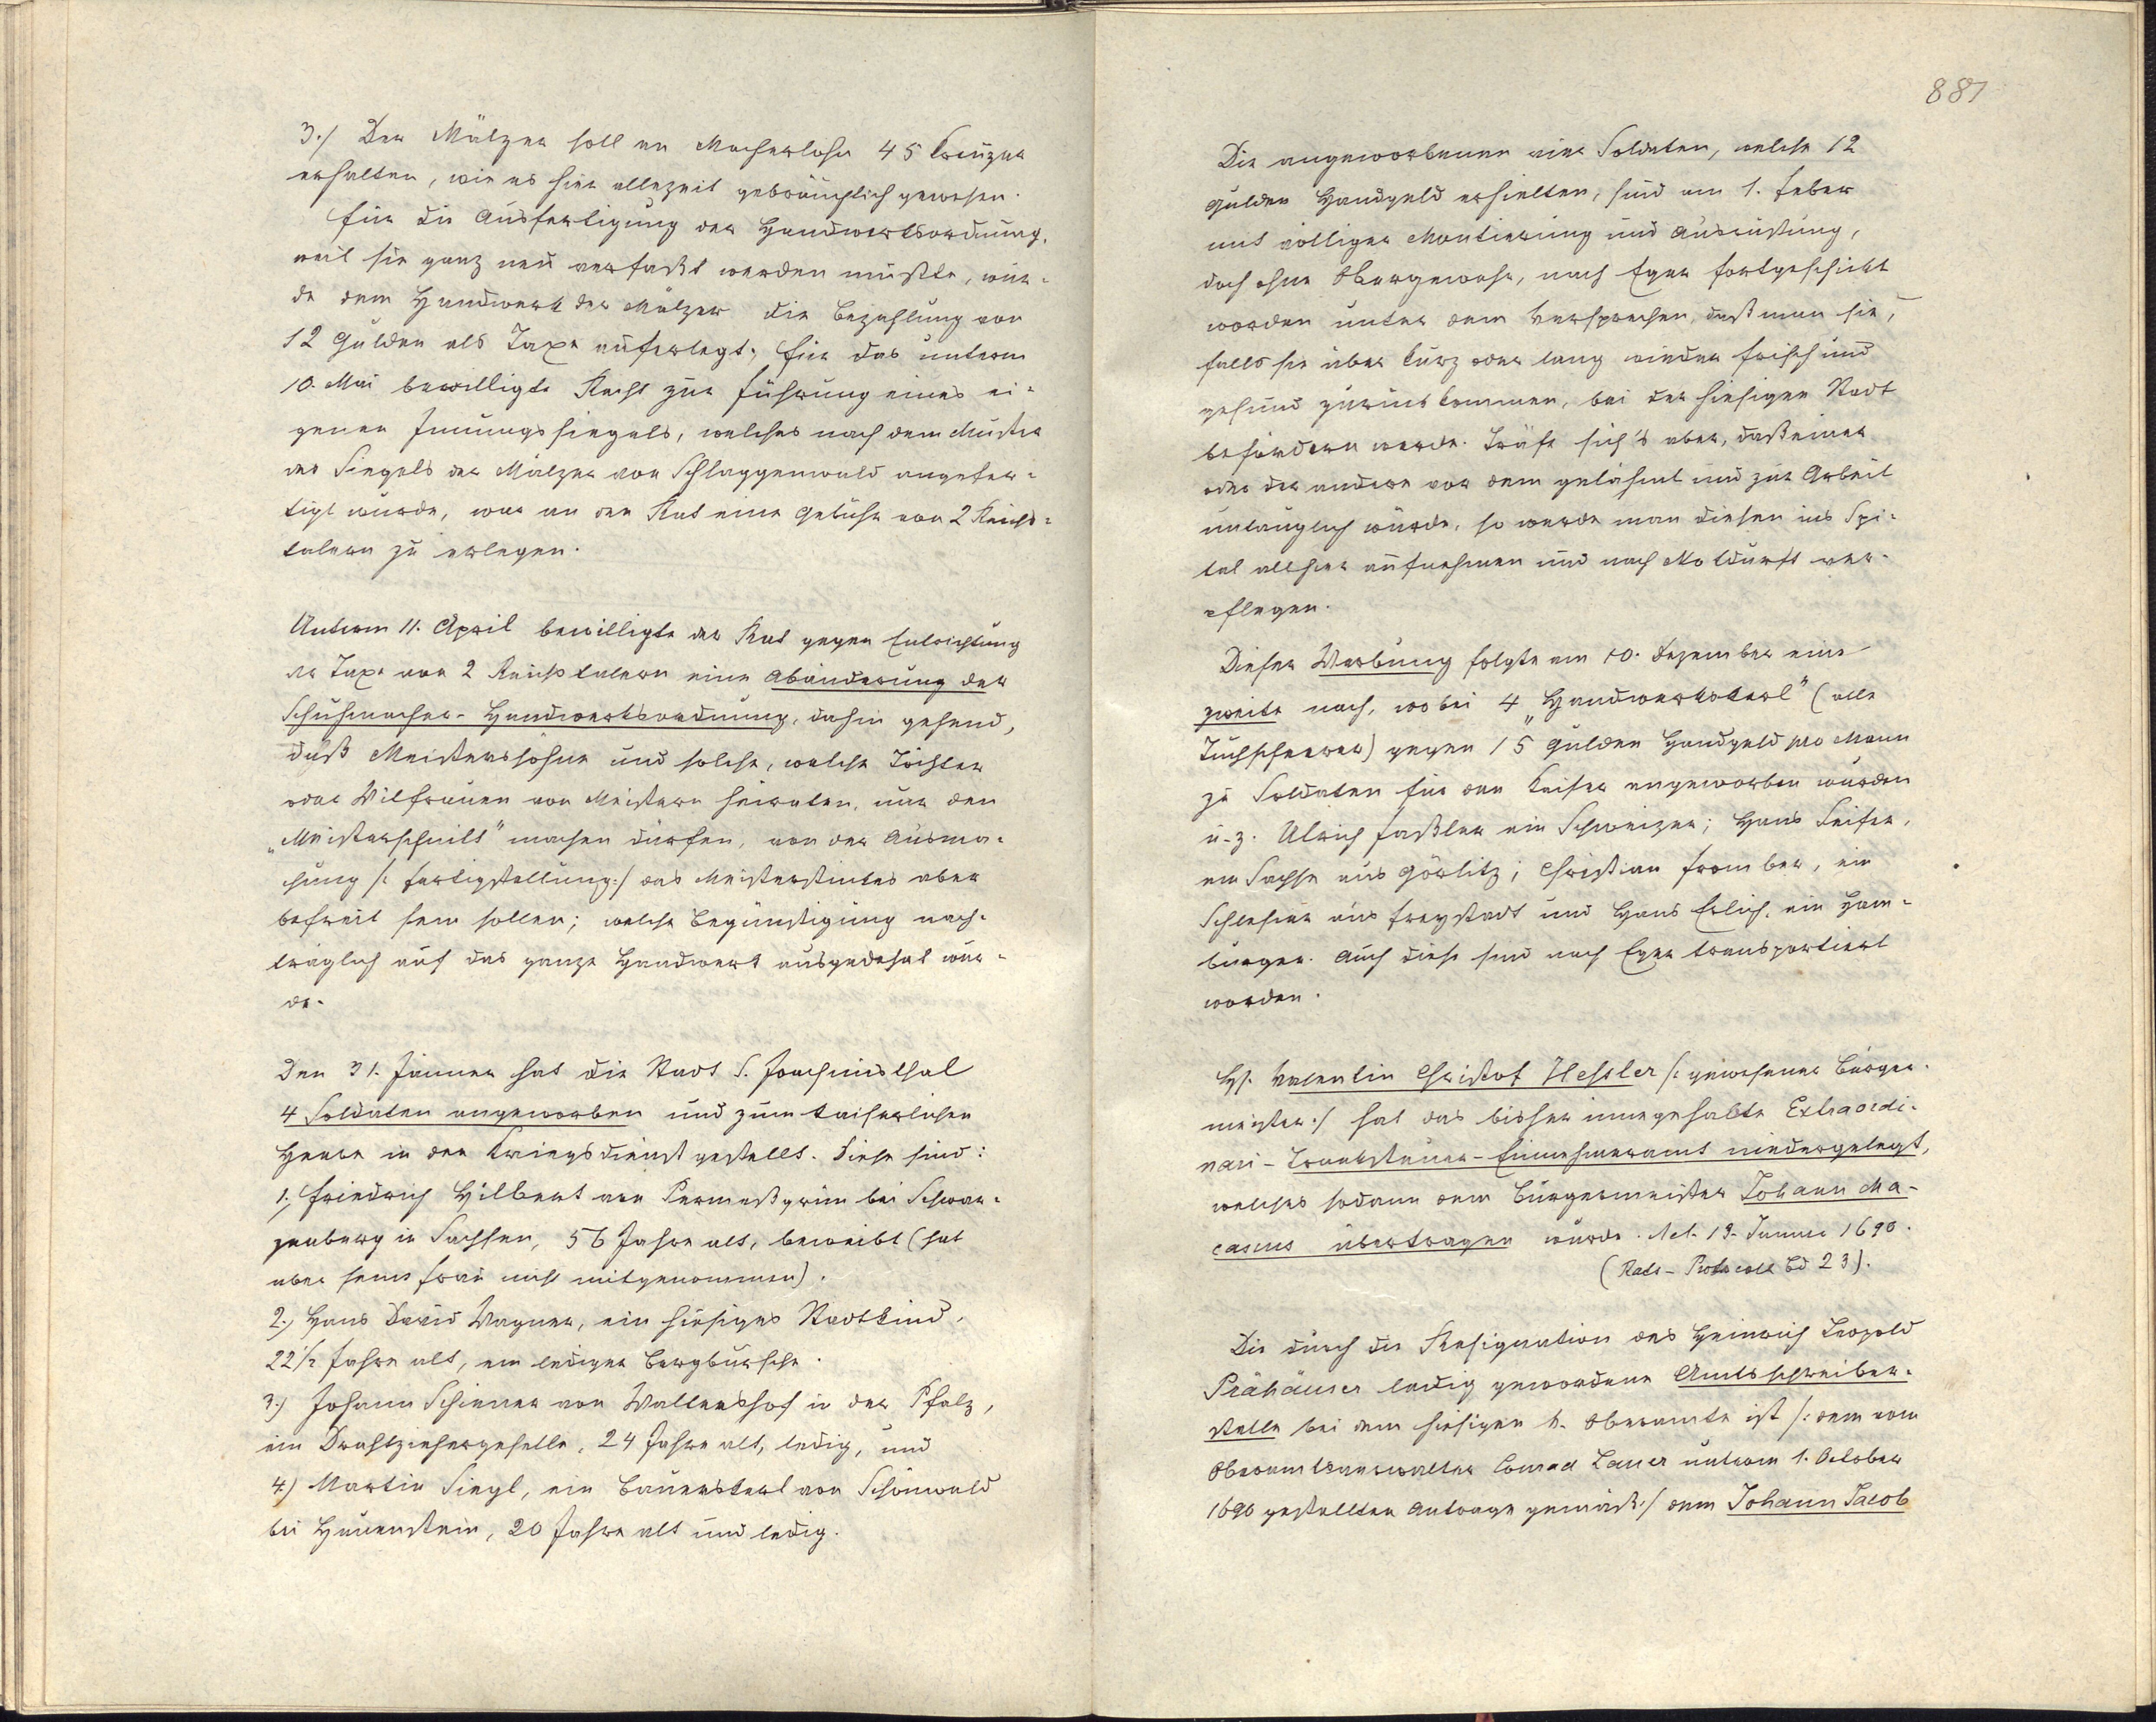 3./ Der Mälzer soll an Macherlohn 45 Kreuzer
erhalten, wie es hier allezeit gebräuchlich gewesen.
Für die Ausfertigung der Handwerksordnung,
weil sie ganz neu verfaßt werden mußte, wur-
de dem Handwerk der Mälzer die Bezahlung von
12 Gulden als Taxe auferlegt; für das unterm
10. Mai bewilligte Recht zur Führung eines ei-
genen Innungssiegels, welches nach dem Muster
des Siegels der Mälzer von Schlaggenwald angefer-
tigt wurde, war an den Rat eine Gebühr von 2 Reichs-
talern zu erlegen.
Unterm 11. April bewilligte der Rat gegen Entrichtung
der Taxe von 2 Reichstalern eine Abänderung der
Schuhmacher-Handwerksordnung, dahin gehend,
daß Meisterssöhne und solche, welche Töchter
oder Witfrauen von Meistern heiraten, nur den
„Meisterschnitt" machen dürfen, von der Ausma-
chung /: Fertigstellung :/ des Meisterstückes aber
befreit sein sollen; welche Begünstigung nach-
träglich auf das ganze Handwerk ausgedehnt wur-
de.
Den 31. Jänner hat die Stadt S. Joachimsthal
4 Soldaten angeworben und zum kaiserlichen
Heere in den Kriegsdienst gestellt. Diese sind:
1.) Friedrich Hilbert von Permesgrün bei Schwar-
zenberg in Sachsen, 56 Jahre alt, beweibt (hat
aber seine Frau nicht mitgenommen).
2.) Hans David Wagner, ein hiesiges Stadtkind,
22½ Jahre alt, ein lediger Bergbursche.
3.) Johann Schirmer von Waltershof in der Pfalz,
ein Drahtziehergeselle, 24 Jahre alt, ledig, und
4.) Martin Siegl, ein Bauerskerl von Schönwald
bei Hauenstein, 20 Jahre alt und ledig.
887
Die angeworbenen vier Soldaten, welche 12
Gulden Handgeld erhielten, sind am 1. Feber
mit völliger Montierung und Ausrüstung,
doch ohne Obergewehr, nach Eger fortgeschickt
worden unter dem Versprechen, daß man sie,
falls sie über kurz oder lang wieder frisch und
gesund zurückkommen, bei der hiesigen Stadt
befördern werde. Träfe sich's aber, daß einer
oder der andere vor dem gelähmt und zur Arbeit
untauglich würde, so werde man diesen ins Spi-
tal allhier aufnehmen und nach Notdurft ver-
pflegen.
Dieser Werbung folgte am 10. Dezember eine
zweite nach, wobei 4 „Handwerkskerl" (alle
Tuchscherer) gegen 15 Gulden Handgeld pro Mann
zu Soldaten für den Kaiser angeworben wurden
u. z. Ulrich Faßler ein Schweizer; Hans Seifer,
ein Sachse aus Görlitz; Christian Fromber, ein
Schlesier aus Freystadt und Hans Erlich, ein Ham-
burger. Auch diese sind nach Eger transportiert
worden.
H. Valentin Christof Hessler /: gewesener Bürger-
meister :/ hat das bisher innegehabte Extraordi-
nari-Tranksteuer-Einnehmeramt niedergelegt,
welches sodann dem Bürgermeister Johann Ma-
casius übertragen wurde. Act. 19. Januar 1690.
(Rats-Protocoll Bd 23).
Die durch die Resignation des Heinrich Leopold
Prähäuser ledig gewordene Amtsschreiber-
stelle bei dem hiesigen k. Oberamte ist /: dem vom
Oberamtsverwalter Conrad Lauer unterm 1. October
1690 gestellten Antrage gemäß :/ dem Johann Jacob